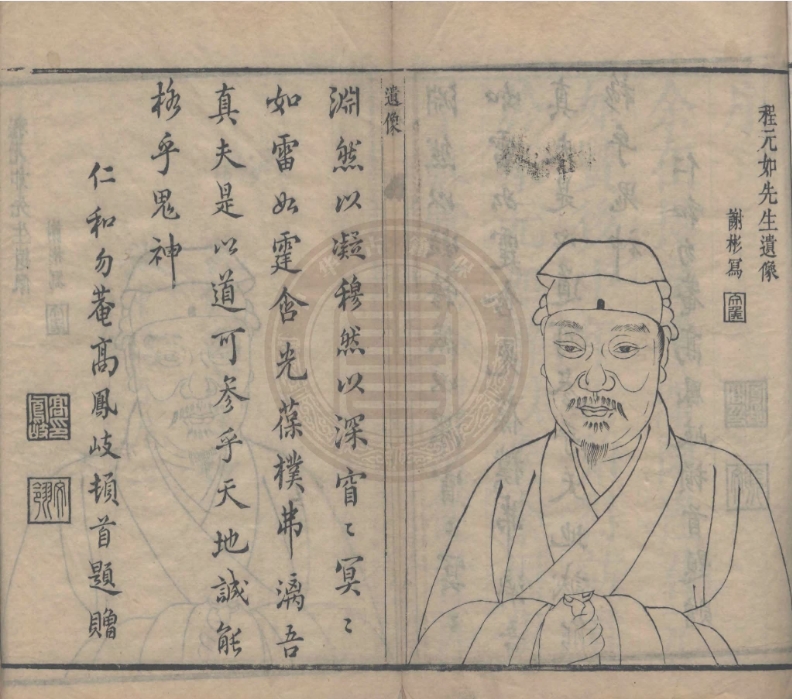 程元如先生遺像
謝彬寫
遺像
淵然以凝穆然以深窅〻冥〻
如雷如霆含光葆樸弗漓吾
真夫是以道可參乎天地誠能
格乎鬼神
仁和勿菴高鳳岐頓首題贈
高鳳岐印